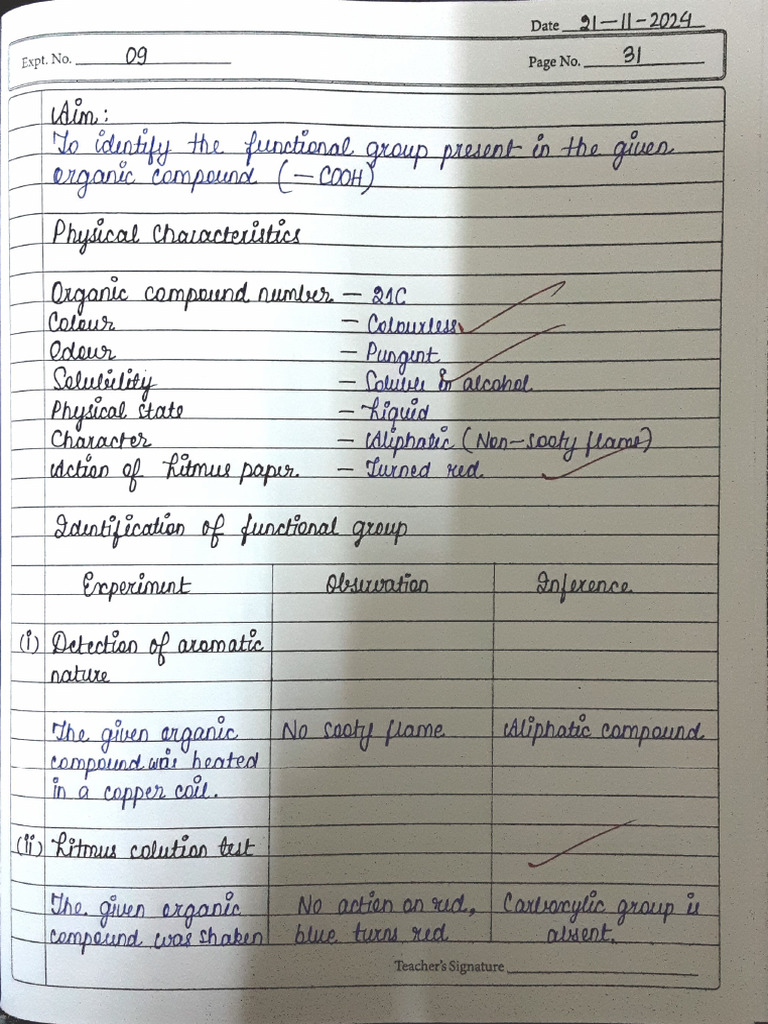 Date 21-11-2024
Expt. No. 09
Page No. 31
Aim:
To identify the functional group present in the given
organic compound (-COOH)
Physical Characteristics
Organic compound number - 21C
Colour - Colourless
Odour - Pungent
Solubility - Soluble in alcohol
Physical state - Liquid
Character - Aliphatic (Non-sooty flame)
Action of Litmus paper. - Turned red.
Identification of functional group
Experiment Observation Inference
(i) Detection of aromatic
nature
The given organic No sooty flame Aliphatic compound.
compound was heated
in a copper coil.
(ii) Litmus solution test
The given organic No action on red, Carboxylic group is
compound was shaken blue turns red absent.
Teacher's Signature